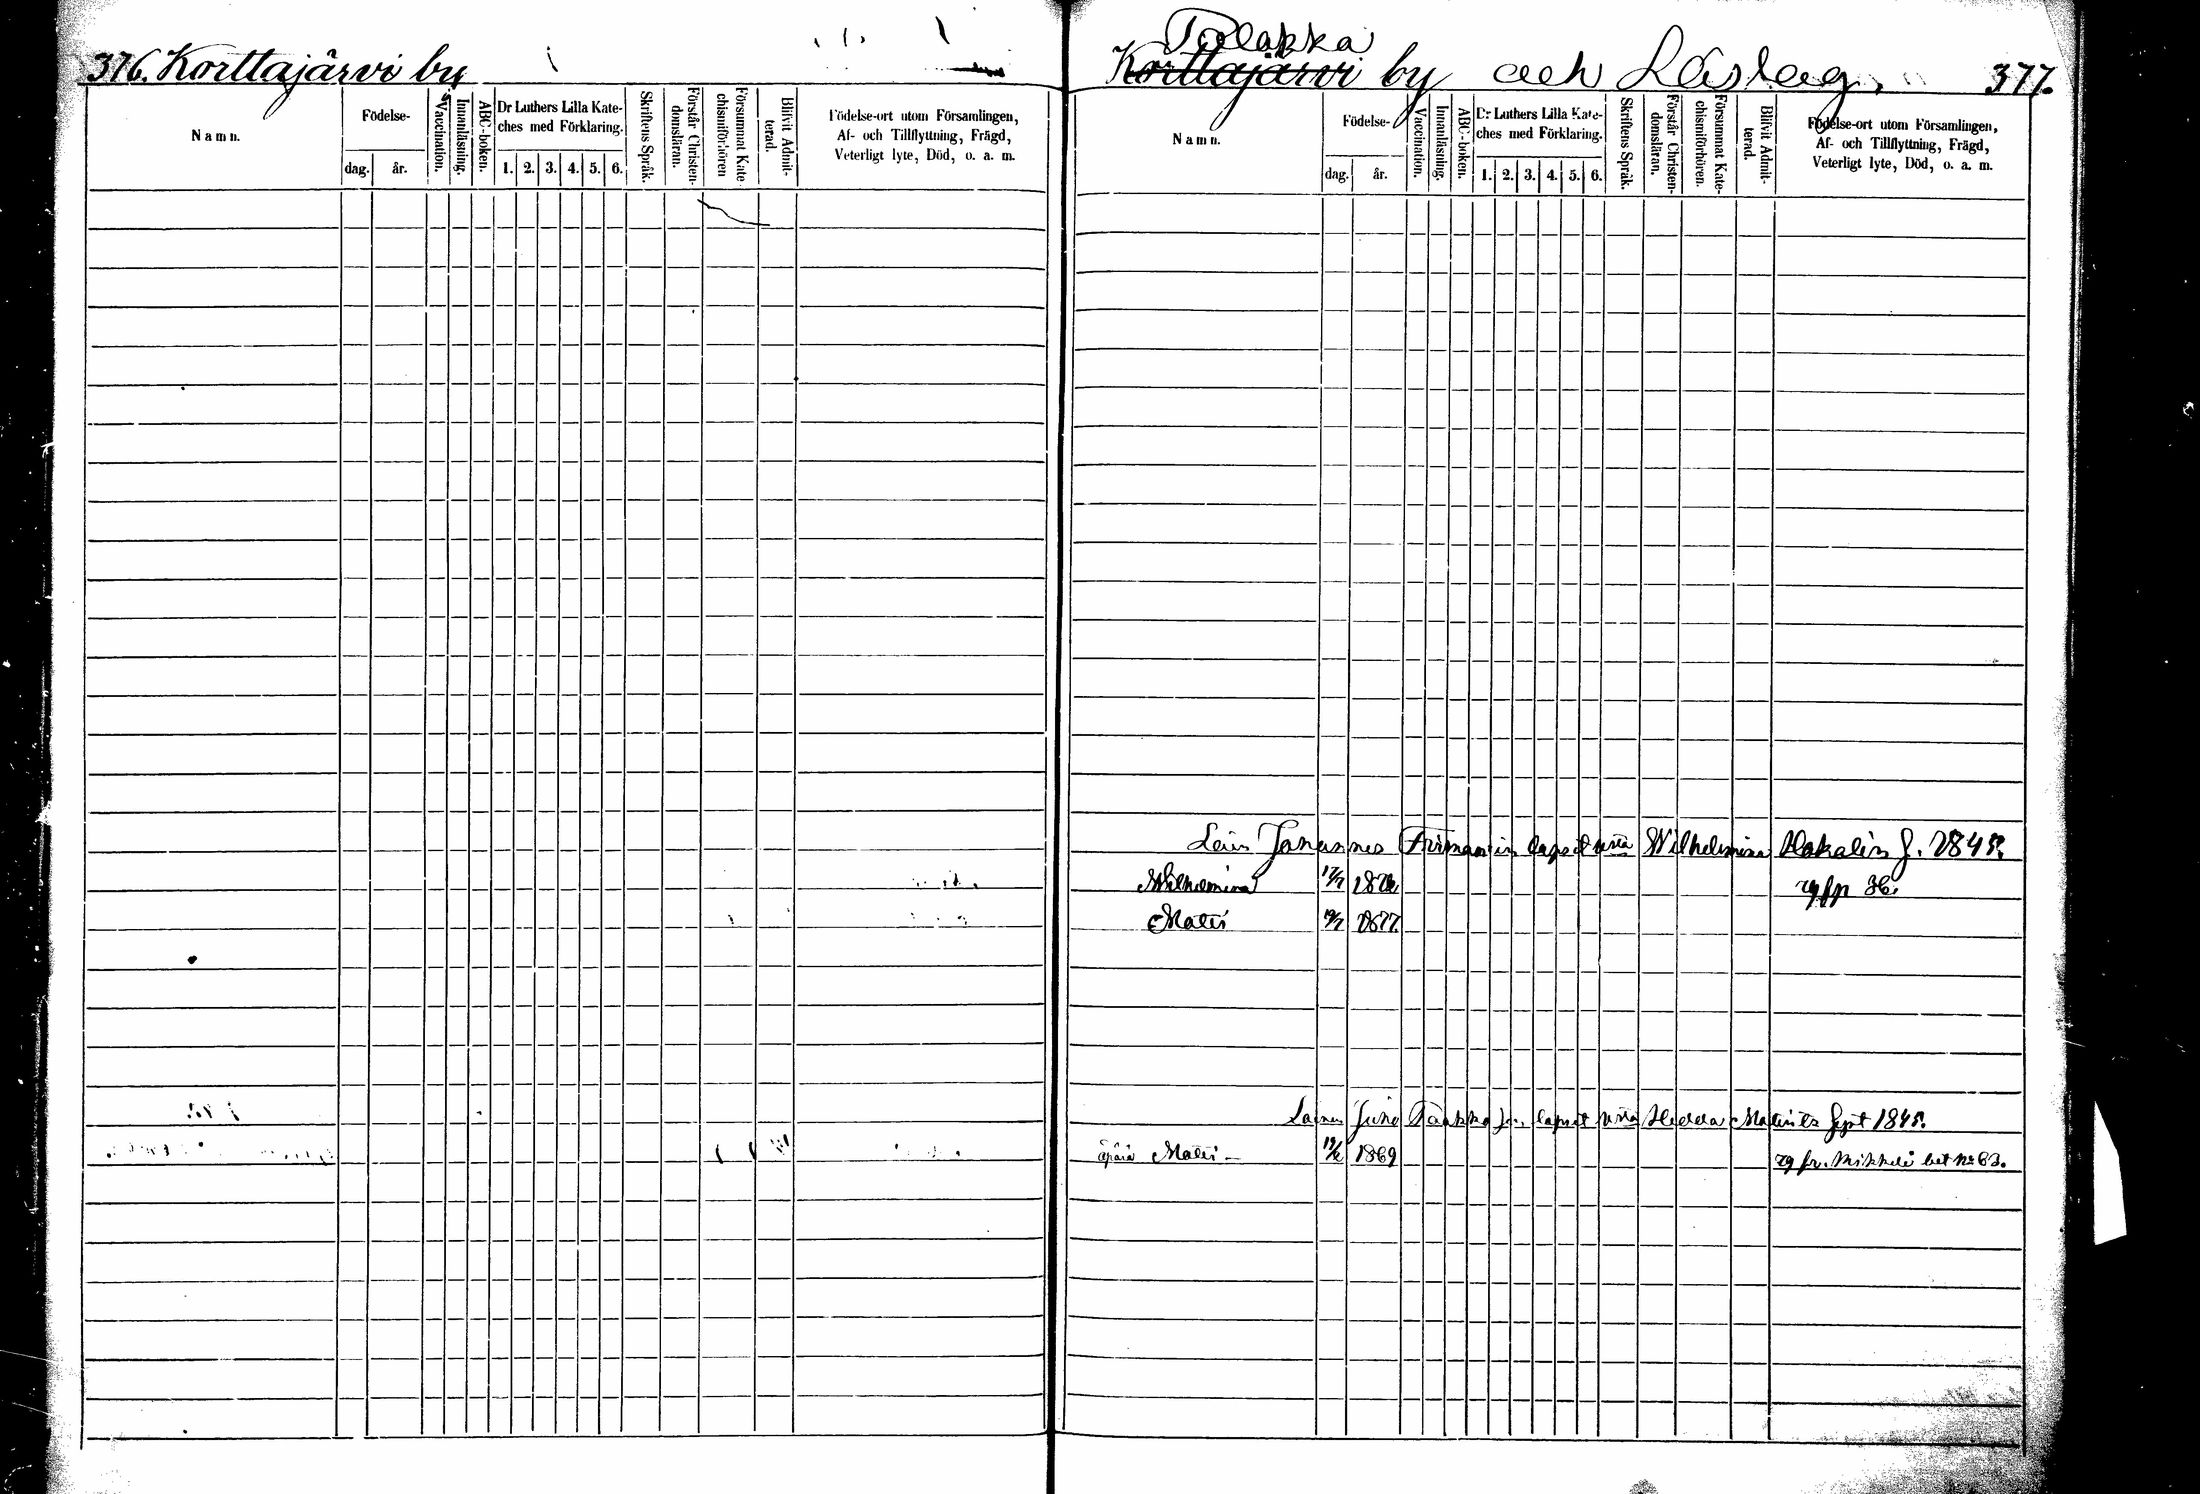 376. Korttajärvi by
Namn.
Födelse-
dag. år.
Vaccination.
Innanläsning.
ABC-boken.
Dr Luthers Lilla Kate-
ches med Förklaring.
1. 2. 3. 4. 5. 6.
Skriftens Språk.
Förstår Christen-
domsläran.
Försummat Kate-
chismiförhören
Blifvit Admit-
terad.
Födelse-ort utom Församlingen,
Af- och Tillflyttning, Frägd,
Veterligt lyte, Död, o. a. m.
Tolakka
Korttajärvi by och Läslag. 377.
Namn.
Födelse-
dag. år.
Vaccination.
Innanläsning.
ABC-boken.
Dr Luthers Lilla Kate-
ches med Förklaring.
1. 2. 3. 4. 5. 6.
Skriftens Språk.
Förstår Christen-
domsläran.
Försummat Kate-
chismiförhören.
Blifvit Admit-
terad.
Födelse-ort utom Församlingen,
Af- och Tillflyttning, Frägd,
Veterligt lyte, Död, o. a. m.
Johannes lapset Wilhelmina
Wilhelmina
Matti 1877.
Juho lapset Hedda
Matti 1869 fr. Mikkeli bet No 63.